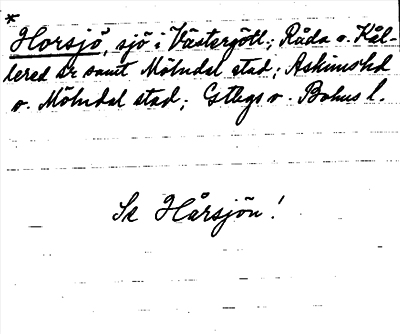 *
Horsjö, sjö i Västergötl; Råda o. Kål-
lered sr samt Mölndal stad; Askims hd
o. Mölndal stad; Gtbgs o. Bohus l.
Se Hårsjön!